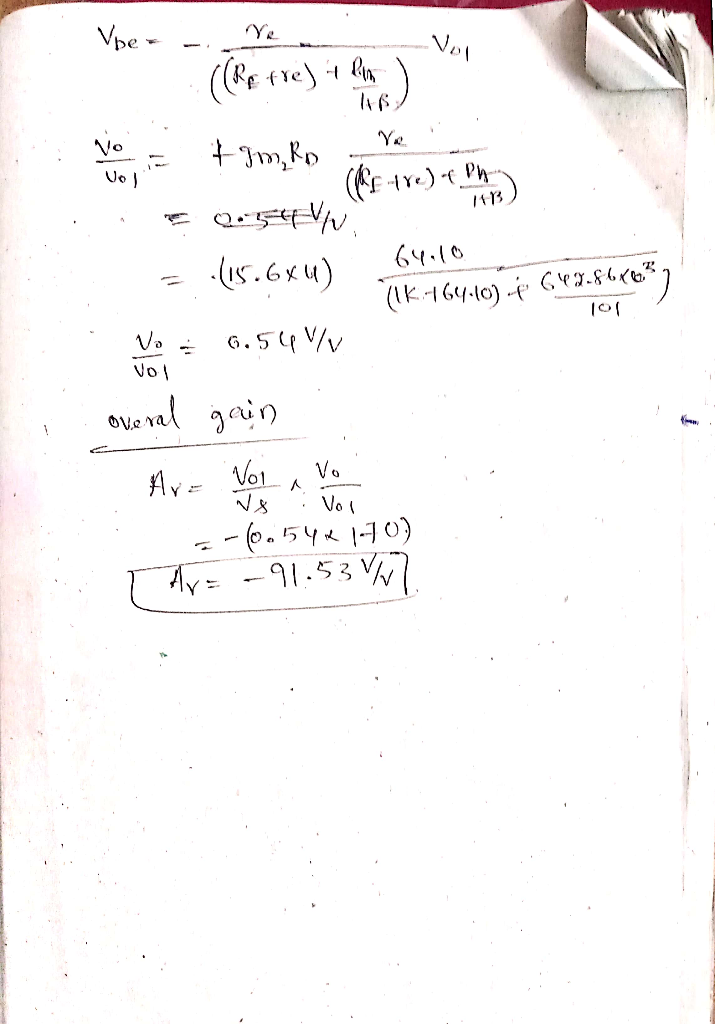 Vbe = - re / ((RE + re) + Rin / 1+β) Vo1
Vo / Vo1 = + gm2 RD re / ((RE + re) + Rin / 1+β)
= 0.54 V/V
= (15.6 x 4) 64.10 / ((1K + 64.10) + 642.86 x 10³ / 101)
Vo / Vo1 = 0.54 V/V
overal gain
Av = Vo1 / Vs x Vo / Vo1
= - (0.54 x 170)
Av = - 91.53 V/V